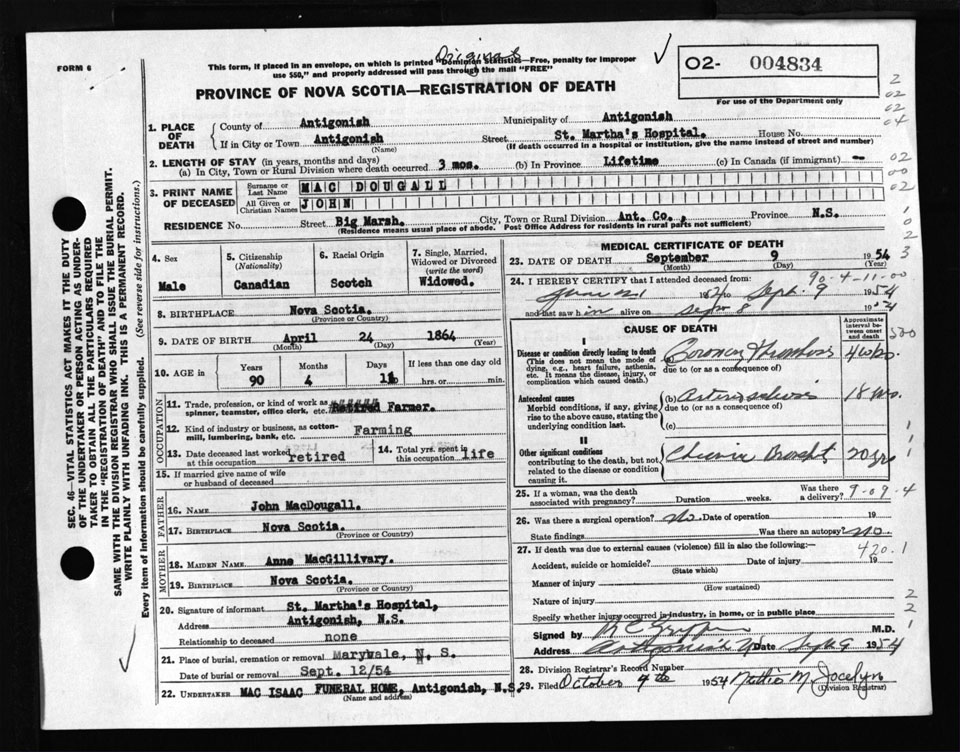 Original
FORM 6
This form, if placed in an envelope, on which is printed "Dominion Statistics—Free, penalty for improper
use $50," and properly addressed will pass through the mail "FREE"
02- 004834
For use of the Department only
PROVINCE OF NOVA SCOTIA—REGISTRATION OF DEATH
1. PLACE OF DEATH
County of Antigonish Municipality of Antigonish
If in City or Town Antigonish (Name) Street St. Martha's Hospital. House No.
(If death occurred in a hospital or institution, give the name instead of street and number)
2. LENGTH OF STAY (in years, months and days)
(a) In City, Town or Rural Division where death occurred 3 mos. (b) In Province Lifetime (c) In Canada (if immigrant) —
3. PRINT NAME OF DECEASED
Surname or Last Name MAC DOUGALL
All Given or Christian Names JOHN
RESIDENCE No. Street Big Marsh. City, Town or Rural Division Ant. Co., Province N.S.
(Residence means usual place of abode. Post Office Address for residents in rural parts not sufficient)
4. Sex
Male
5. Citizenship (Nationality)
Canadian
6. Racial Origin
Scotch
7. Single, Married, Widowed or Divorced (write the word)
Widowed.
8. BIRTHPLACE Nova Scotia.
(Province or Country)
9. DATE OF BIRTH April 24 1864
(Month) (Day) (Year)
10. AGE in Years Months Days If less than one day old
90 4 hrs. or min.
OCCUPATION
11. Trade, profession, or kind of work as spinner, teamster, office clerk, etc. Retired Farmer.
12. Kind of industry or business, as cotton-mill, lumbering, bank, etc. Farming
13. Date deceased last worked at this occupation retired
14. Total yrs. spent in this occupation life
15. If married give name of wife or husband of deceased
FATHER
16. NAME John MacDougall.
17. BIRTHPLACE Nova Scotia.
(Province or Country)
MOTHER
18. MAIDEN NAME Anne MacGillivary.
19. BIRTHPLACE Nova Scotia.
(Province or Country)
20. Signature of informant St. Martha's Hospital,
Address Antigonish, N.S.
Relationship to deceased none
21. Place of burial, cremation or removal Maryvale, N. S.
Date of burial or removal Sept. 12/54
22. UNDERTAKER MAC ISAAC FUNERAL HOME, Antigonish, N.S.
MEDICAL CERTIFICATE OF DEATH
23. DATE OF DEATH September 9 1954
(Month) (Day) (Year)
24. I HEREBY CERTIFY that I attended deceased from:
90-4-11-00
to Sept. 9 1954
and last saw h im alive on Sept 8 1954
CAUSE OF DEATH
Approximate interval between onset and death
I
Disease or condition directly leading to death
(This does not mean the mode of dying, e.g., heart failure, asthenia, etc. It means the disease, injury, or complication which caused death.)
Coronary Thrombosis
due to (or as a consequence of)
Antecedent causes
Morbid conditions, if any, giving rise to the above cause, stating the underlying condition last.
(b) Arteriosclerosis 18 mo.
due to (or as a consequence of)
(c)
II
Other significant conditions
contributing to the death, but not related to the disease or condition causing it.
Chronic Bronchitis 20 yrs
25. If a woman, was the death associated with pregnancy? Duration weeks. Was there a delivery?
9-09-4
26. Was there a surgical operation? no Date of operation 19
State findings Was there an autopsy? no
27. If death was due to external causes (violence) fill in also the following:—
420.1
Accident, suicide or homicide? (State which) Date of injury 19
Manner of injury
(How sustained)
Nature of injury
Specify whether injury occurred in industry, in home, or in public place
Signed by M.D.
Address Antigonish Date Sept 9 1954
28. Division Registrar's Record Number
29. Filed October 4th 1954 M. Jocelyn
(Division Registrar)
SEC. 46—VITAL STATISTICS ACT MAKES IT THE DUTY
OF THE UNDERTAKER OR PERSON ACTING AS UNDER-
TAKER TO OBTAIN ALL THE PARTICULARS REQUIRED
IN THE "REGISTRATION OF DEATH" AND TO FILE THE
SAME WITH THE DIVISION REGISTRAR WHO SHALL ISSUE THE BURIAL PERMIT.
WRITE PLAINLY WITH UNFADING INK. THIS IS A PERMANENT RECORD.
Every item of information should be carefully supplied. (See reverse side for instructions.)
2
02
02
04
02
00
02
1
0
2
3
500
1
1
1
2
2
1